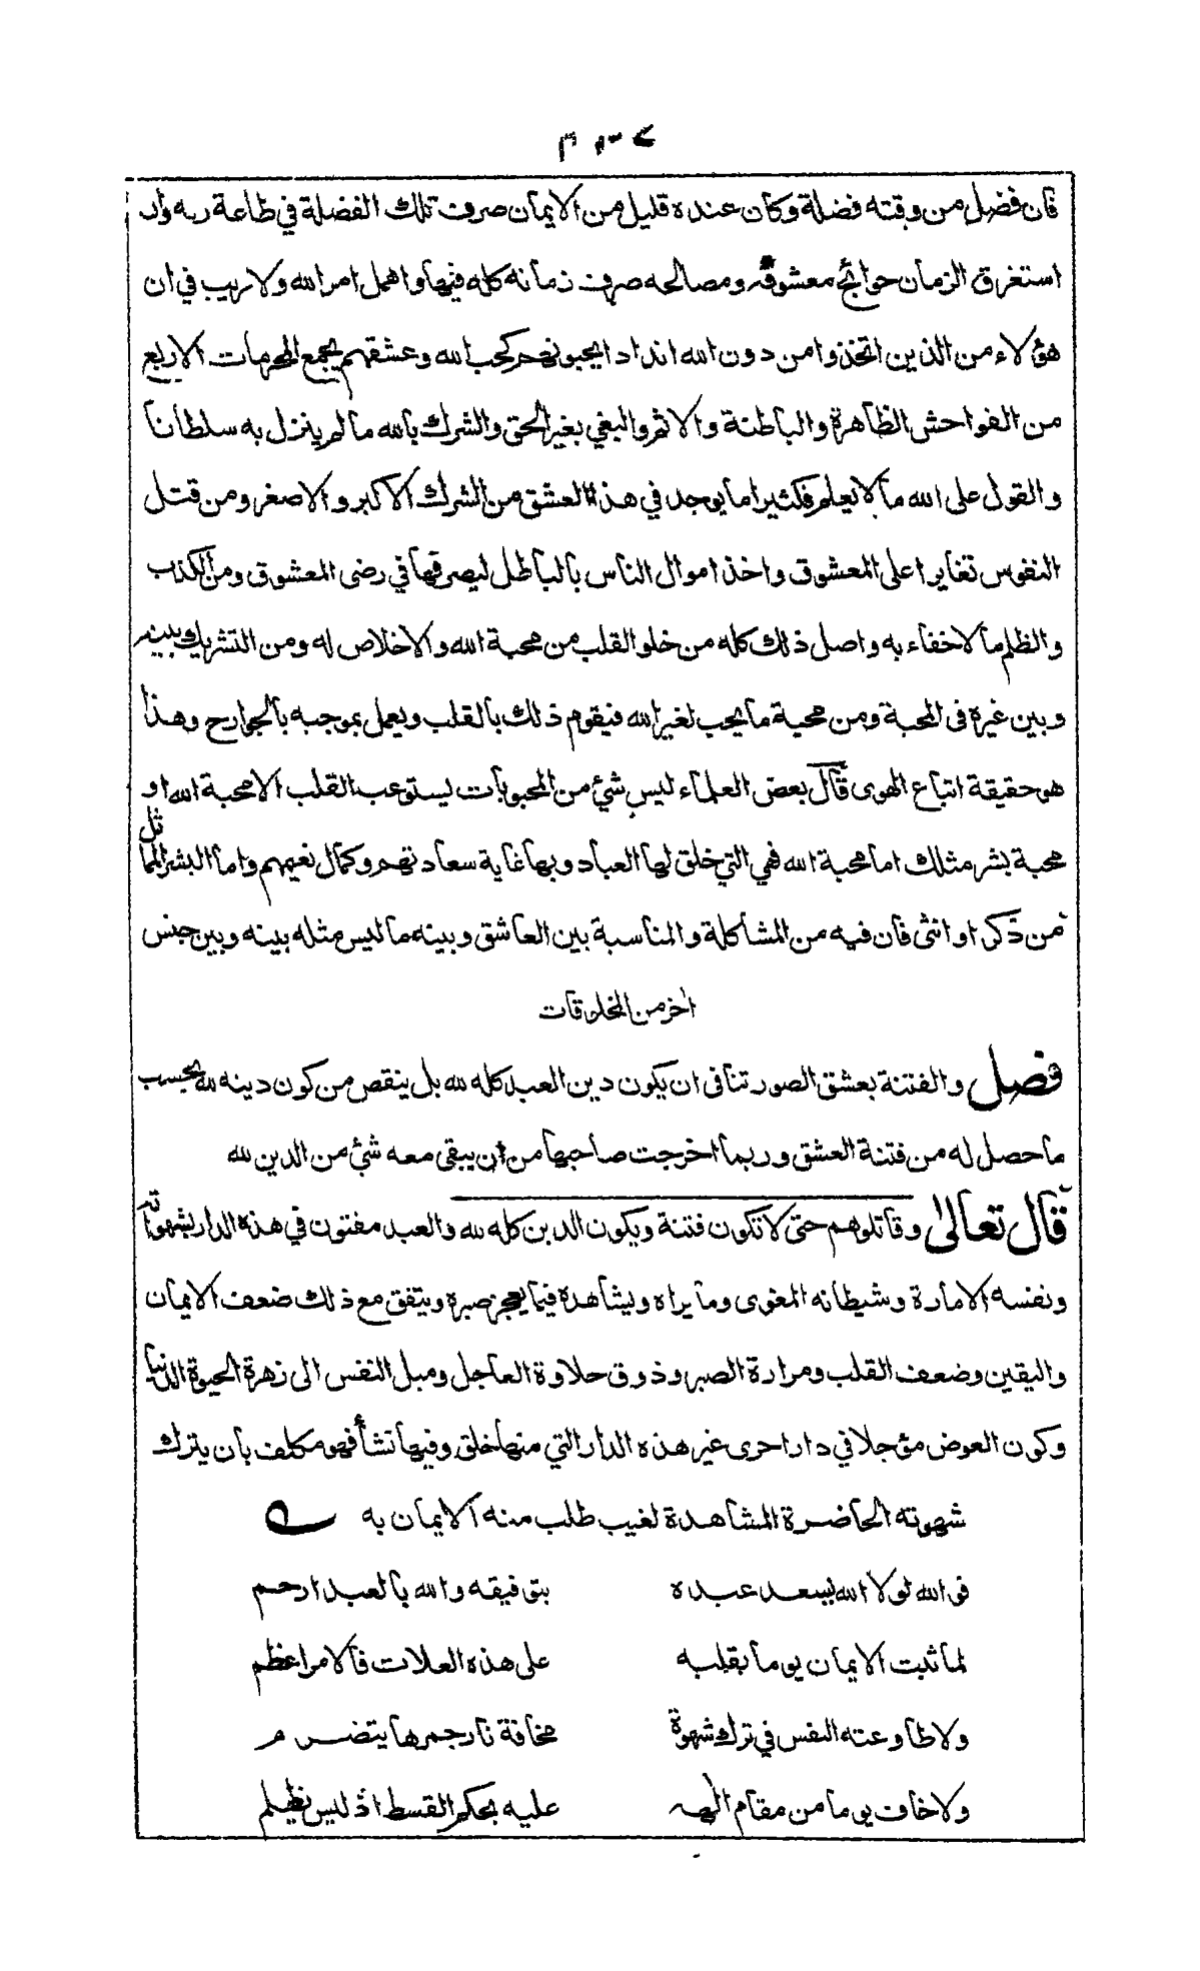 فان فضل من وقته فضلة وكان عنده قليل من الايمان صرف تلك الفضلة في طاعة ربه وان
استغرق الزمان حوائج معشوقه ومصالحه صرف زمانه كله فيها واهمل امر الله ولا ريب في ان
هؤلاء من الذين اتخذوا من دون الله اندادا يحبونهم كحب الله وعشقهم يجمع المحرمات الاربع
من الفواحش الظاهرة والباطنة والاثم والبغي بغير الحق والشرك بالله ما لم ينزل به سلطانا
والقول على الله ما لا يعلم فكثيرا ما يوجد في هذا العشق من الشرك الاكبر والاصغر ومن قتل
النفوس تغايرا على المعشوق واخذ اموال الناس بالباطل ليصرفها في رضى المعشوق ومن الكذب
والظلم ما لا خفاء به واصل ذلك كله من خلو القلب من محبة الله والاخلاص له ومن التشريك بينه
وبين غيره في المحبة ومن محبة ما يحب لغير الله فيقوم ذلك بالقلب ويعمل بموجبه بالجوارح وهذا
هو حقيقة اتباع الهوى قال بعض العلماء ليس شئ من المحبوبات يستوعب القلب الا محبة الله او
محبة بشر مثلك اما محبة الله فهي التي خلق لها العباد وبها غاية سعادتهم وكمال نعيمهم واما البشر المماثل
من ذكر او انثى فان فيه من المشاكلة والمناسبة بين العاشق وبينه ما ليس مثله بينه وبين جنس
اخر من المخلوقات
فصل والفتنة بعشق الصور تنافى ان يكون دين العبد كله لله بل ينقص من كون دينه لله بحسب
ما حصل له من فتنة العشق وربما اخرجت صاحبها من ان يبقى معه شئ من الدين لله
قال تعالى وقاتلوهم حتى لا تكون فتنة ويكون الدين كله لله والعبد مفتون في هذه الدار بشهواته
ونفسه الامارة وشيطانه المغوى وما يراه ويشاهده فيما يعجز صبره ويتفق مع ذلك ضعف الايمان
واليقين وضعف القلب ومرارة الصبر وذوق حلاوة العاجل وميل النفس الى زهرة الحيوة الدنيا
وكون العوض مؤجلا في دار اخرى غير هذه الدار التي منها خلق وفيها نشأ فهو مكلف بان يترك
شهوته الحاضرة المشاهدة لغيب طلب منه الايمان به
فو الله لولا الله يسعد عبده بتوفيقه والله بالعبد ارحم
لما ثبت الايمان يوما بقلبه على هذه العلات فالامر اعظم
ولا طاوعته النفس في ترك شهوة مخافة نار جمرها يتضرم
ولا خاف يوما من مقام الهه عليه بحكم القسط اذ ليس يظلم